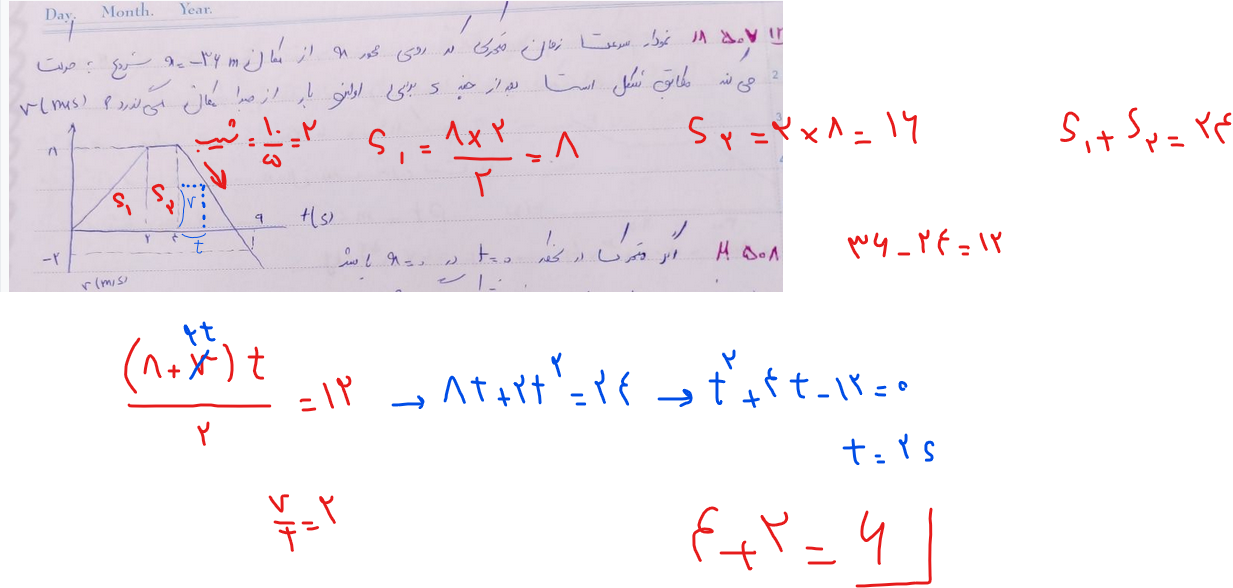 Day. Month. Year.
نمودار سرعت زمان متحرکی که روی محور x از مکان x = -۳۶ m شروع به حرکت
می‌کند مطابق شکل است بعد از چند s برای اولین بار از مبدا مکان می‌گذرد؟
v (m/s)
۸
-۲
S₁
S₂
v
t
۲
۴
۹
t(s)
شیب = ۱۰/۵ = ۲
S₁ = ۸×۲/۲ = ۸
S₂ = ۲×۸ = ۱۶
S₁ + S₂ = ۲۴
۳۶ - ۲۴ = ۱۲
اگر متحرک در لحظه t=۰ در x=۰ باشد
v (m/s)
(۸ + v) t / ۲ = ۱۲
۲t
→ ۸t + ۲t² = ۲۴ → t² + ۴t - ۱۲ = ۰
t = ۲ s
v/t = ۲
۴ + ۲ = ۶